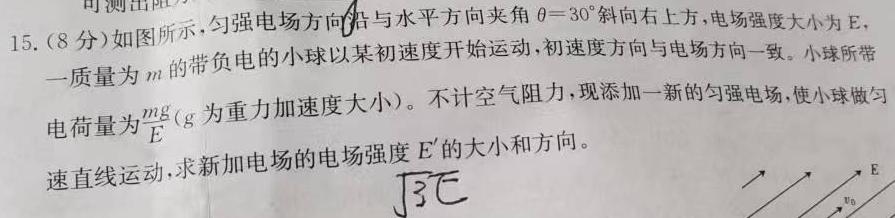 可测出阻
15.(8分)如图所示,匀强电场方向沿与水平方向夹角 θ=30°斜向右上方,电场强度大小为 E,
一质量为 m 的带负电的小球以某初速度开始运动,初速度方向与电场方向一致。小球所带
电荷量为mg/E(g 为重力加速度大小)。不计空气阻力,现添加一新的匀强电场,使小球做匀
速直线运动,求新加电场的电场强度 E′的大小和方向。
√3E
E
v₀